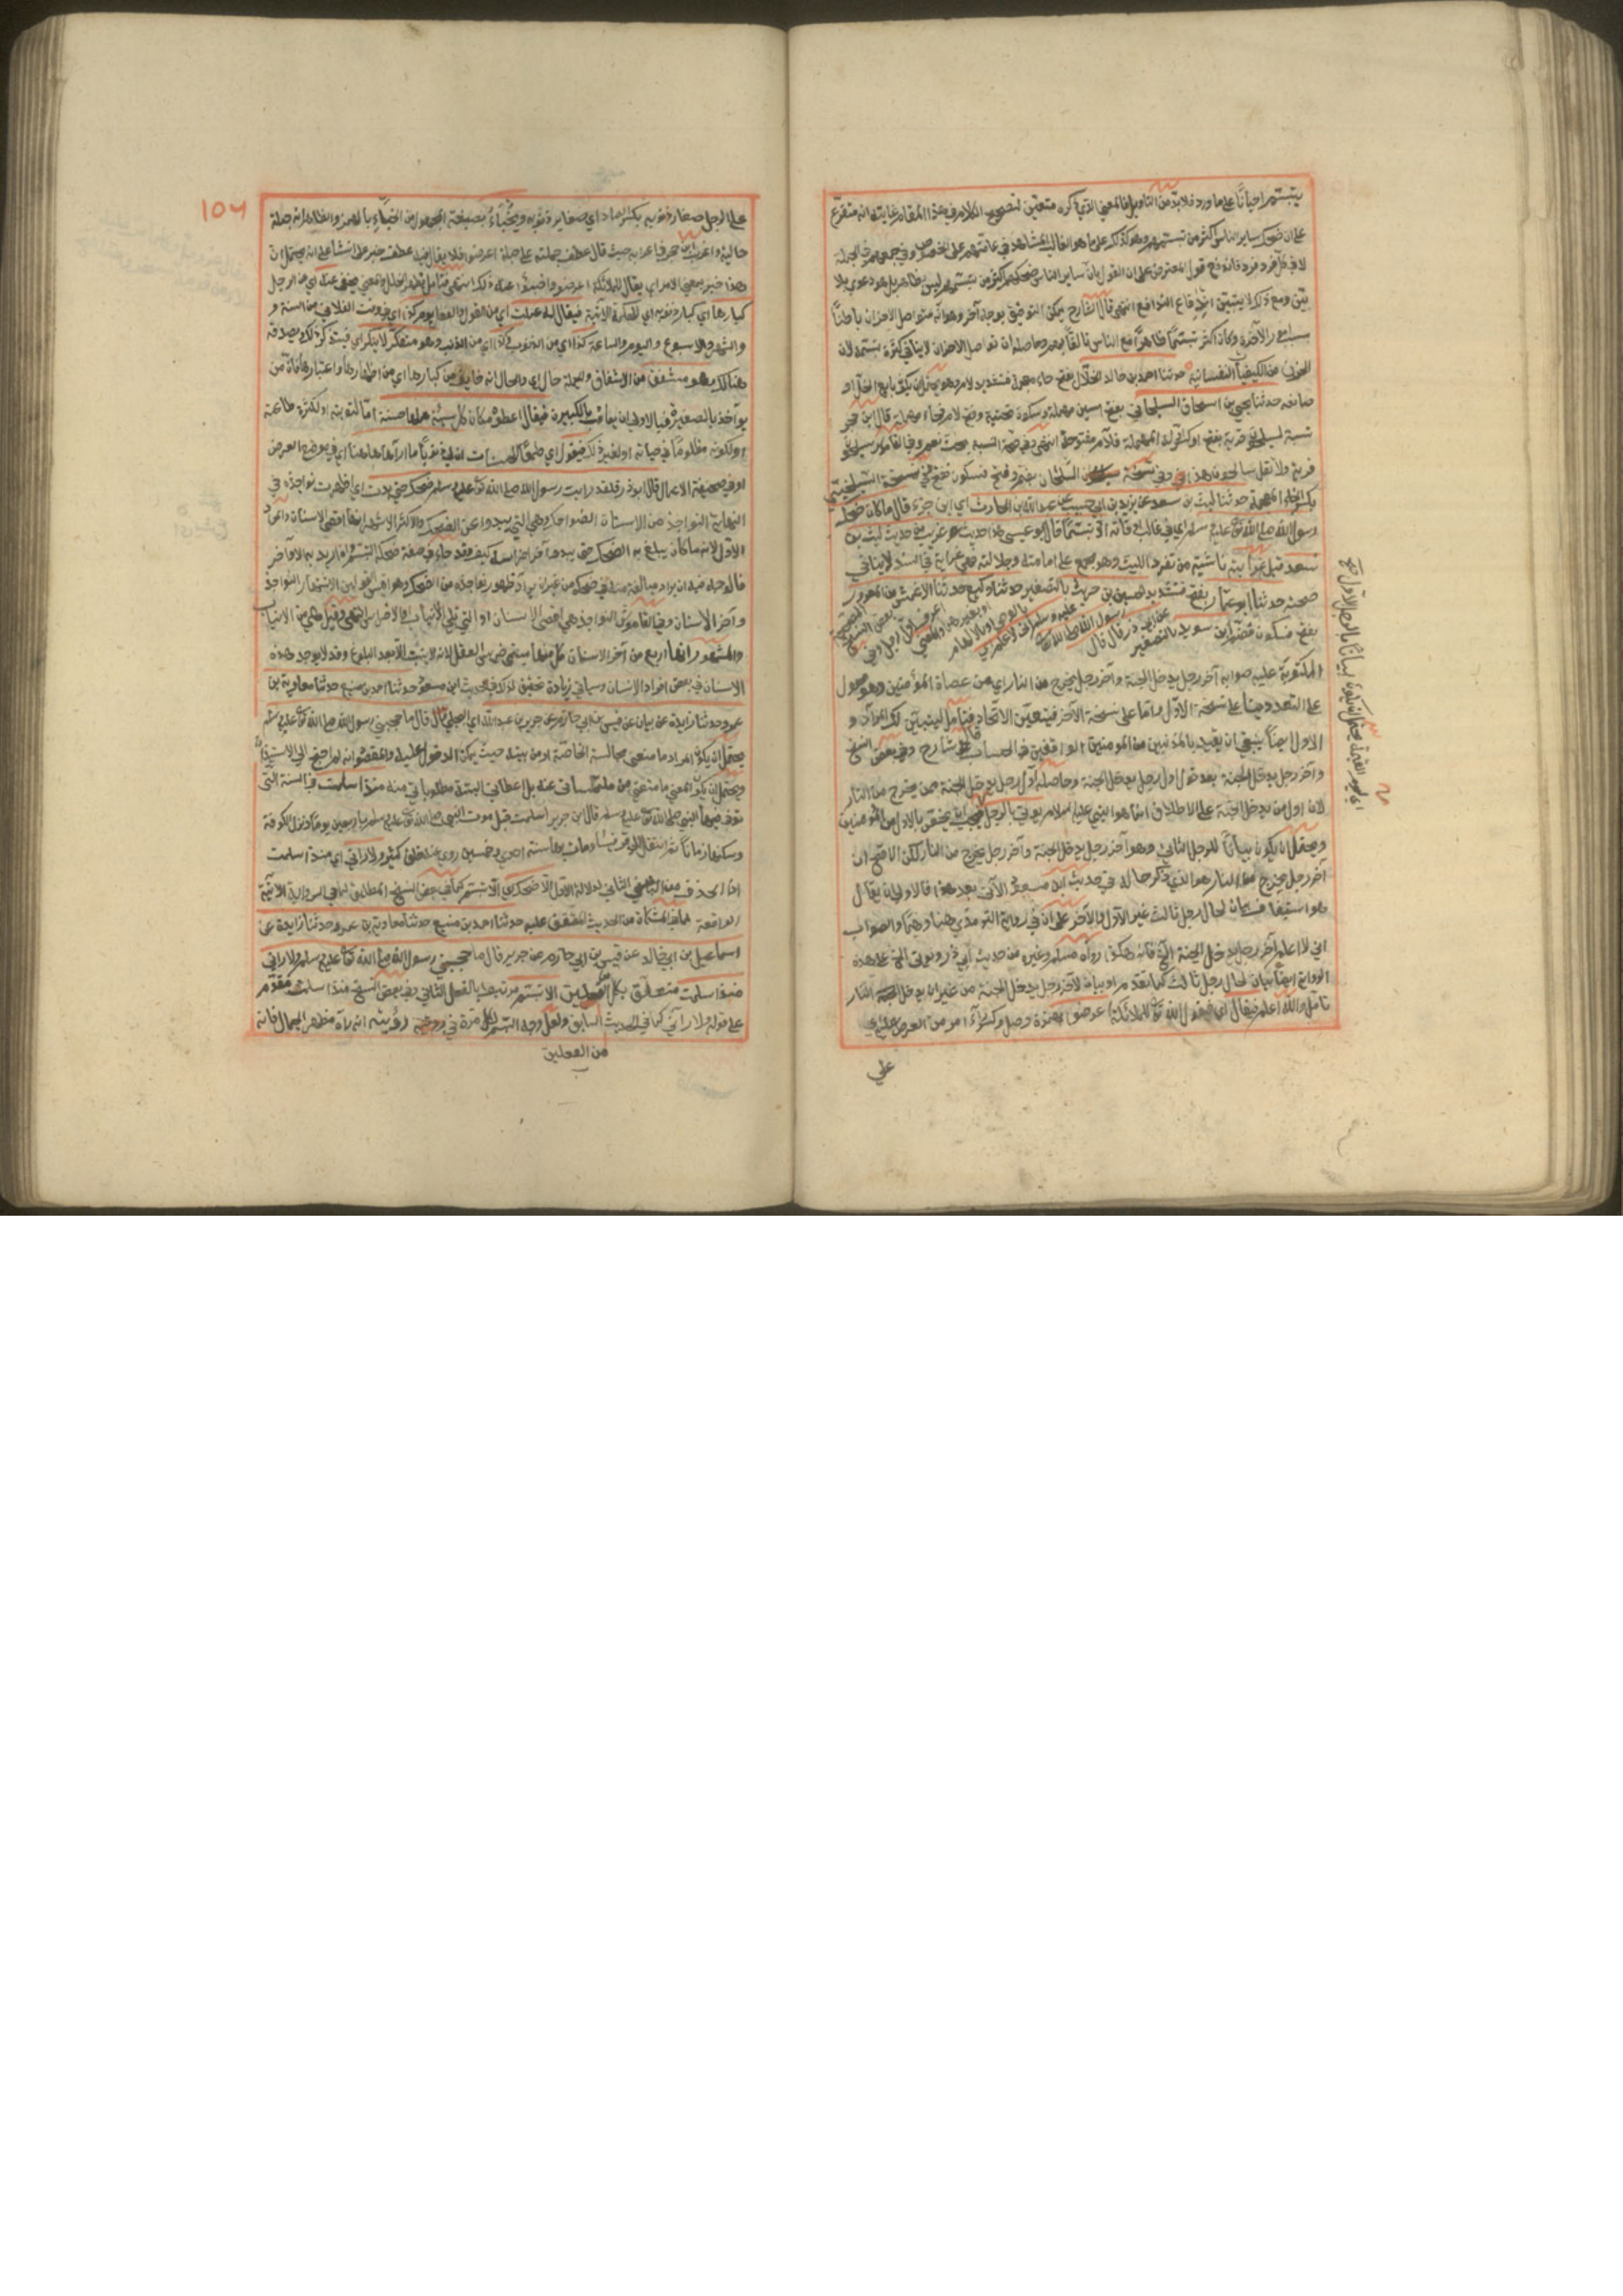 يتبسم احيانا على ما ورد فلا بد من التأويل فالمعنى الذي ذكره متعين لتصحيح الكلام في هذا المقام غايته انه متفرع
على ان ضحك ساير الناس اكثر من تبسمهم وهو كذلك على ما هو الغالب المشاهد في عامتهم على الخصوص وفي جميعهم في الجملة
لا في كل فرد فرد فاندفع قول المعترض على ان القول بان ساير الناس ضحكهم اكثر من تبسمهم ليس بظاهر بل هو دعوى بلا
ومع ذلك لا يتبين اندفاع التدافع انتهى قال الشارح يمكن التوفيق بوجه آخر وهو انه متواصل الاحزان باطنا
بسبب امور الآخرة وكان اكثر تبسما ظاهرا مع الناس تألفا بهم وحاصله ان تواصل الاحزان لا ينافي كثرة تبسمه لان
الحزن من الكيفيات النفسانية حدثنا احمد بن خالد الخلال بفتح خاء معجمة فتشديد لام وهو يحتمل ان يكون بايع الخل او
صانعه حدثنا يحيى بن اسحاق السيلحاني بفتح السين مهملة وسكون تحتية وفتح لام فحاء مهملة قال ابن حجر
نسبة لسيلحون قرية بفتح اوله المهملة فلام مفتوحة انتهى
قرية ولا تقل سالحون هذا وفي نسخة السلحان بضم وفتح فسكون
بكسر الخاء المعجمة حدثنا ليث بن سعد عن يزيد بن ابي حبيب عن عبد الله بن الحارث اي ابن جزء قال ما كان ضحك
رسول الله صلى الله تع عليه وسلم اي في غالب اوقاته الا تبسما قال ابو عيسى هذا حديث غريب من حديث ليث بن
سعد قيل غرابته ناشئة من تفرد الليث وهو مجمع على امامته وجلالته فهي غرابة في السند لا ينافي
صحته حدثنا ابو عمار بفتح فتشديد الحسين بن حريث بالتصغير حدثنا وكيع حدثنا الاعمش عن المعرور
بفتح فسكون فضم ابن سويد بالتصغير عن ابي ذر قال قال رسول الله صلى الله تع عليه وسلم اني لاعلم اي بالوحي او بالالهام او بغيرهما والمعنى اعرف اول رجل وفي بعض النسخ
المكتوب عليه صوابه آخر رجل يدخل الجنة وآخر رجل يخرج من النار اي من عصاة المؤمنين وهو محمول
على التعدد مبنا على نسخة الاول واما على نسخة الآخر فيتعين الاتحاد فتأمل
الاول يمنا ينبغي ان يقيد بالمذنبين من المؤمنين الواقفين في الحساب قال شارح وفي بعض النسخ
وآخر رجل يدخل الجنة بعد قوله اول رجل يدخل الجنة وحاصله اول رجل يدخل الجنة ممن يخرج من النار
لان اول من يدخل الجنة على الاطلاق انما هو النبي عليه السلام
ويحتمل ان يكون بيانا للرجل الثاني وهو آخر رجل يدخل الجنة وآخر رجل يخرج من النار لكن الاصح ان
آخر رجل يخرج من النار هو الذي ذكر حاله في حديث ابن مسعود الآتي بعد هذا فالاولى ان يقال
هو استيناف بيان لحال رجل ثالث غير الاول والآخر على ان في رواية الترمذي هنا وهما والصواب
اني لاعلم آخر رجل يدخل الجنة الخ فانه هكذا رواه مسلم وغيره من حديث ابي ذر ويؤتى الخ على هذه
الرواية ايضا بيان لحال رجل ثالث كما تقدم او بيان لآخر رجل يدخل الجنة من غير ان يدخل النار
تأمل والله اعلم فيقال اي فيقول الله تع للملائكة اعرضوا بهمزة وصل وكسر راء امر من العرض عليه
على
اي يوم القيمة يحتمل ان يكون بيانا للرجل الاول صح
١٥٦
على الرجل صغار ذنوبه بكسر الصاد اي صغاير ذنوبه ويخباء بصيغة المجهول من الخباء بالهمز والظاهر انه جملة
حالية واغرب ابن حجر في اعرابه حيث قال عطف جملته على جملة اعرضوا فلا يقال فيه عطف خبر على انشاء على انه يحتمل ان
هذا خبر بمعنى الامر اي يقال للملائكة اعرضوا واخبئوا عنه ذلك انتهى فتأمل يظهر الخلل والمعنى يخفى عنه اي عن الرجل
كبارها اي كبار ذنوبه اي للحكمة الآتية فيقال له عملت اي من القول والفعل يوم كذا اي في وقت الفلاني من السنة و
والشهر والاسبوع واليوم والساعة كذا اي من الذنوب كذا اي من الذنب وهو متفكر لا ينكر اي فيتذكر ذلك ويصدقه
هنالك وهو مشفق من الاشفاق والجملة حال اي والحال انه خايف من كبارها اي من اظهارها واعتبارها فان من
يؤاخذ بالصغيرة فبالاولى ان يعاقب بالكبيرة فيقال اعطوه مكان كل سيئة عملها حسنة اما لتوبته او لكثرة طاعته
او لكونه مظلوما في حياته او لغير ذلك فيقول اي طمعا للحسنات ان لي ذنوبا ما اراها هاهنا اي في موضع العرض
او في صحيفة الاعمال قال ابو ذر فلقد رايت رسول الله صلى الله تع عليه وسلم ضحك حتى بدت اي ظهرت نواجذه في
النهاية النواجذ من الاسنان الضواحك وهي التي تبدو عند الضحك والاكثر الاشهر انها اقصى الاسنان والمراد
الاول لانه ما كان يبلغ به الضحك حتى يبدو آخر اضراسه كيف وقد جاء في صفة ضحكه التبسم وان اريد به الاواخر
فالوجه فيه ان يراد مبالغة مثله في ضحكه من غير ان يراد ظهور نواجذه من الضحك وهو اقيس القولين لاشتهار النواجذ
وآخر الاسنان وفي القاموس النواجذ هي اقصى الاسنان او التي تلي الانياب او الاضراس انتهى وقيل هي من الانياب
والمشهور انها اربع من آخر الاسنان كل منها يسمى ضرس العقل لانه لا ينبت الا بعد البلوغ وقد لا يوجد هذه
الاسنان في بعض افراد الانسان وسياتي زيادة تحقيق لذلك في حديث ابن مسعود حدثنا احمد بن منيع حدثنا معاوية بن
عمرو حدثنا زايدة عن بيان عن قيس بن ابي حازم عن جرير بن عبد الله اي البجلي قال قال ما حجبني رسول الله صلى الله تع عليه وسلم
يحتمل ان يكون المراد ما منعني مجالسة الخاصة او من بيته حيث يمكن الدخول عليه والمقصود انه لم احتج الى الاستيذان
ويحتمل ان يكون المعنى ما منعني من ملتمساتي عنه بل اعطاني البتة مطلوباتي منه منذ اسلمت في السنة التي
توفي فيها النبي صلى الله تع عليه وسلم قال ابن جرير اسلمت قبل موت النبي صلى الله تع عليه وسلم باربعين يوما ونزل الكوفة
وسكنها زمانا ثم انتقل الى قرقيسا ومات بها سنة احدى وخمسين روى عنه خلق كثير ولا رآني اي منذ اسلمت
انما الحذف من المعنى الثاني لدلالة الاول الا ضحك اي الا تبسم كما في بعض النسخ المطابق لما في الرواية الآتية
الواقعة لما في المشكاة من الحديث المتفق عليه حدثنا احمد بن منيع حدثنا معاوية بن عمرو حدثنا زايدة عن
اسماعيل بن ابي خالد عن قيس بن ابي حازم عن جرير قال ما حجبني رسول الله صلى الله تع عليه وسلم ولا رآني
منذ اسلمت متعلق بكل الا تبسم مرتبط بالفعل الثاني وفي بعض النسخ منذ اسلمت مقدم
على قوله ولا رآني كما في الحديث السابق ولعل وجه التبسم كل مرة في رؤيته انه رآه مظهر الجمال فانه
من الفعلين